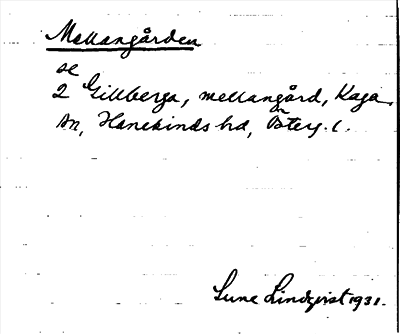 Mellangården
se
2 Gillberga, mellangård, Kaga
sn, Hanekinds hd, Östg. l.
Sune Lindqvist 1931.